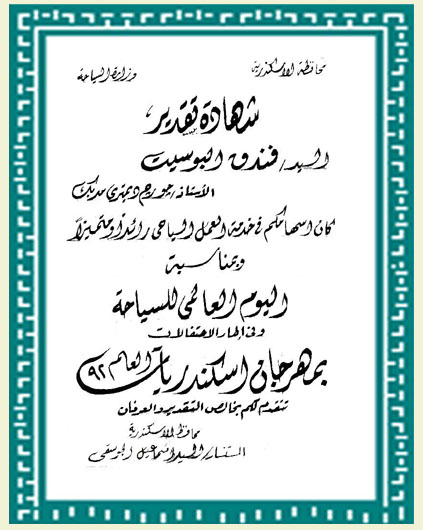 محافظة الاسكندرية
وزارة السياحة
شهادة تقدير
السيد/ فندق البوسيت
الأستاذ/ جورج ديمترى
كان اسهامكم فى خدمة العمل السياحى رائدًا ومتميزًا
وبمناسبة
اليوم العالمى للسياحة
وفى إطار الاحتفالات
بمهرجان اسكندريات العالم ٩٢
نتقدم لكم بخالص التقدير والعرفان
محافظ الاسكندرية
المستشار/ السيد اسماعيل الجوسقى